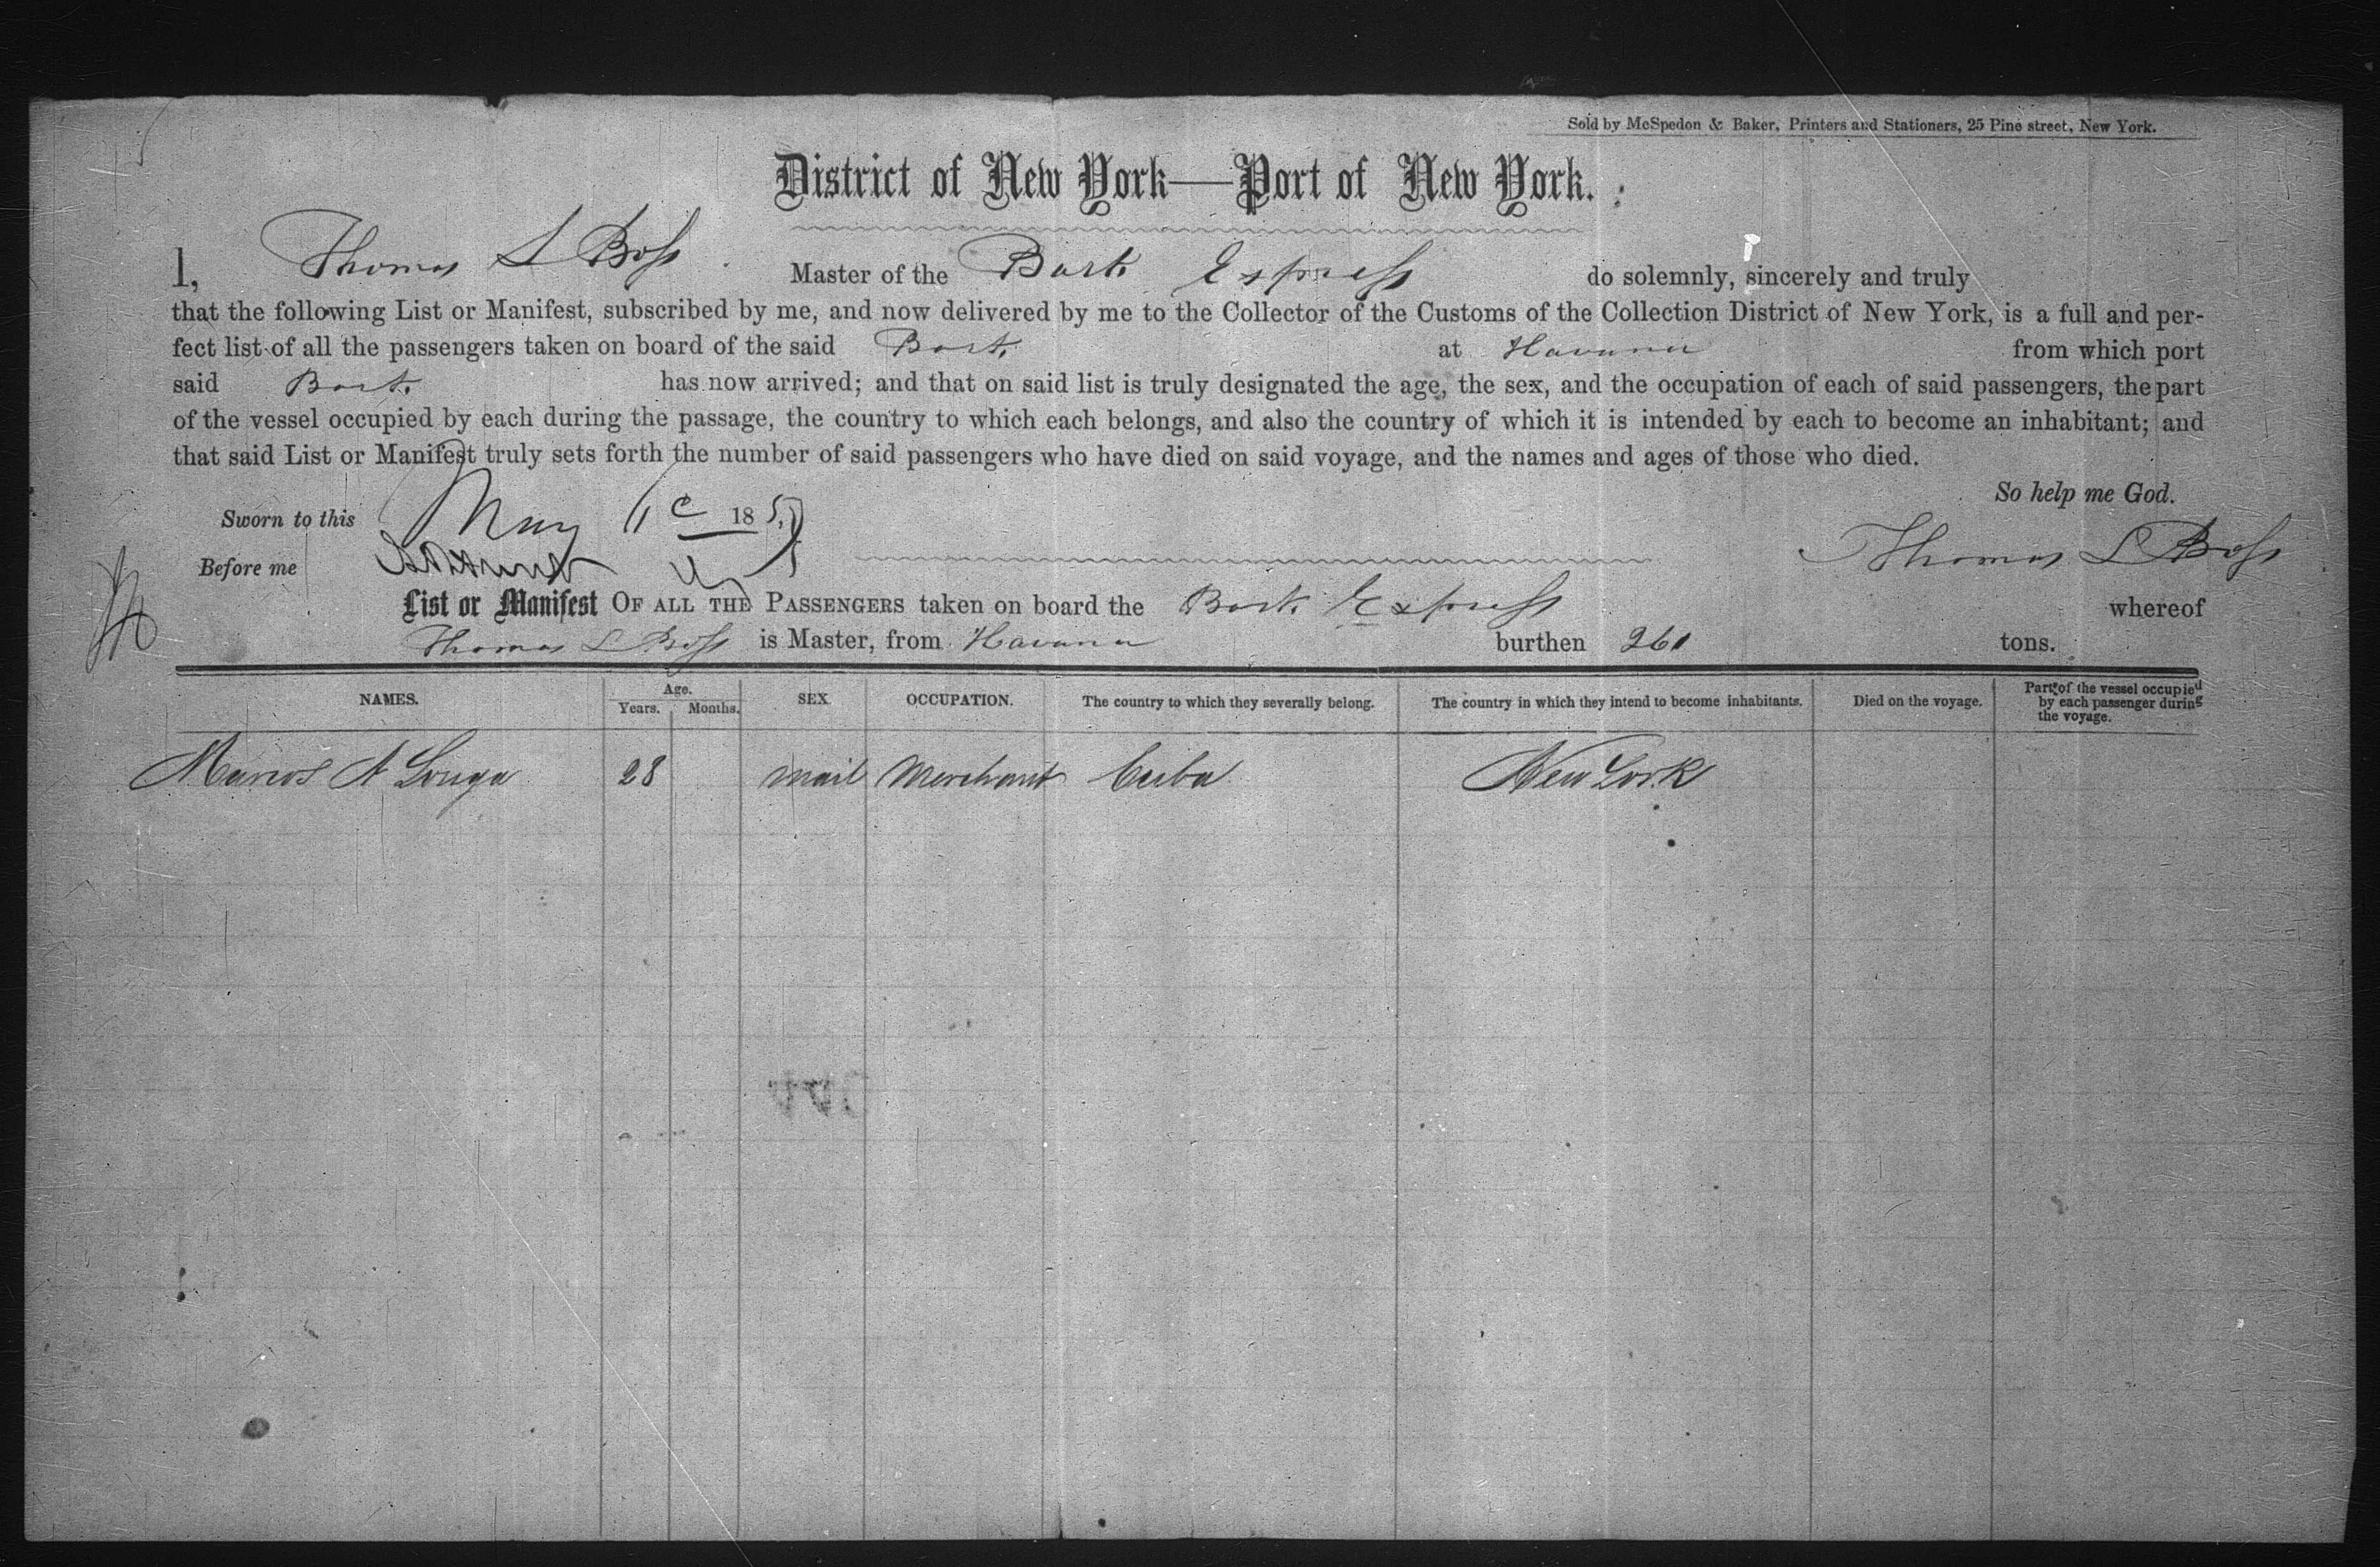 Sold by McSpedon & Baker, Printers and Stationers, 25 Pine street, New York.
District of New York—Port of New York.
I, Thomas L Boss Master of the Bark Express do solemnly, sincerely and truly
that the following List or Manifest, subscribed by me, and now delivered by me to the Collector of the Customs of the Collection District of New York, is a full and per-
fect list of all the passengers taken on board of the said Bark at Havana from which port
said Bark has now arrived; and that on said list is truly designated the age, the sex, and the occupation of each of said passengers, the part
of the vessel occupied by each during the passage, the country to which each belongs, and also the country of which it is intended by each to become an inhabitant; and
that said List or Manifest truly sets forth the number of said passengers who have died on said voyage, and the names and ages of those who died.
So help me God.
Sworn to this May 185
Before me
Thomas L Boss
List or Manifest OF ALL THE PASSENGERS taken on board the Bark Express whereof
Thomas L Boss is Master, from Havana burthen 261 tons.
NAMES. Age. Years. Months. SEX. OCCUPATION. The country to which they severally belong. The country in which they intend to become inhabitants. Died on the voyage. Part of the vessel occupied by each passenger during the voyage.
Marcos A Longa 28 mail Merchant Cuba New York